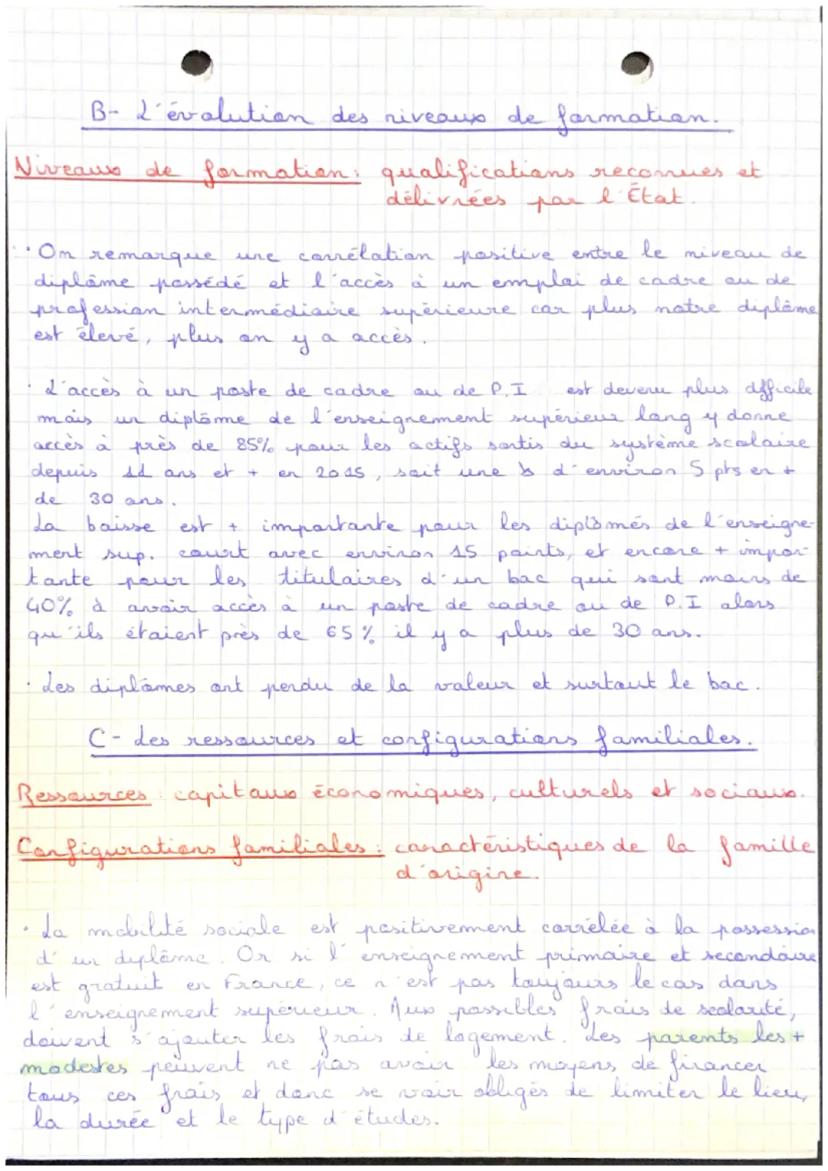 B- L'évolution des niveaux de formation.
Niveaux de formation: qualifications reconnues et
délivrées par l'État.
· On remarque une corrélation positive entre le niveau de
diplôme possédé et l'accès à un emploi de cadre ou de
profession intermédiaire supérieure car plus notre diplôme
est élevé, plus on y a accès.
· L'accès à un poste de cadre ou de P.I est devenu plus difficile
mais un diplôme de l'enseignement supérieur long y donne
accès à près de 85% pour les actifs sortis du système scolaire
depuis 11 ans et + en 2015, soit une ↘ d'environ 5 pts en +
de 30 ans.
La baisse est + importante pour les diplômés de l'enseigne-
ment sup. court avec environ 15 points, et encore + impor-
tante pour les titulaires d'un bac qui sont moins de
40% à avoir accès à un poste de cadre ou de P.I alors
qu'ils étaient près de 65% il y a plus de 30 ans.
· Les diplômes ont perdu de la valeur et surtout le bac.
C- Les ressources et configurations familiales.
Ressources: capitaux économiques, culturels et sociaux.
Configurations familiales: caractéristiques de la famille
d'origine.
· La mobilité sociale est positivement corrélée à la possession
d'un diplôme. Or si l'enseignement primaire et secondaire
est gratuit en France, ce n'est pas toujours le cas dans
l'enseignement supérieur. Aux possibles frais de scolarité,
doivent s'ajouter les frais de logement. Les parents les +
modestes peuvent ne pas avoir les moyens de financer
tous ces frais et donc se voir obligés de limiter le lieu,
la durée et le type d'études.